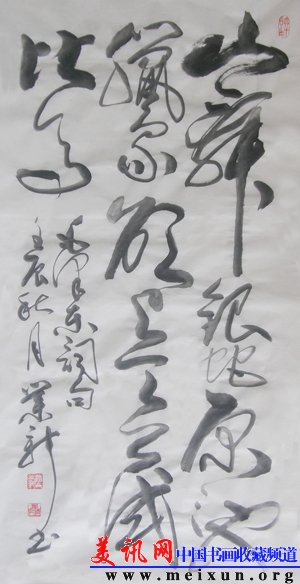 山舞銀蛇原驰
蠟象欲与天公試
比高
毛泽东詞句
壬辰秋月業新书
美讯网 中国书画收藏频道
www.meixun.org